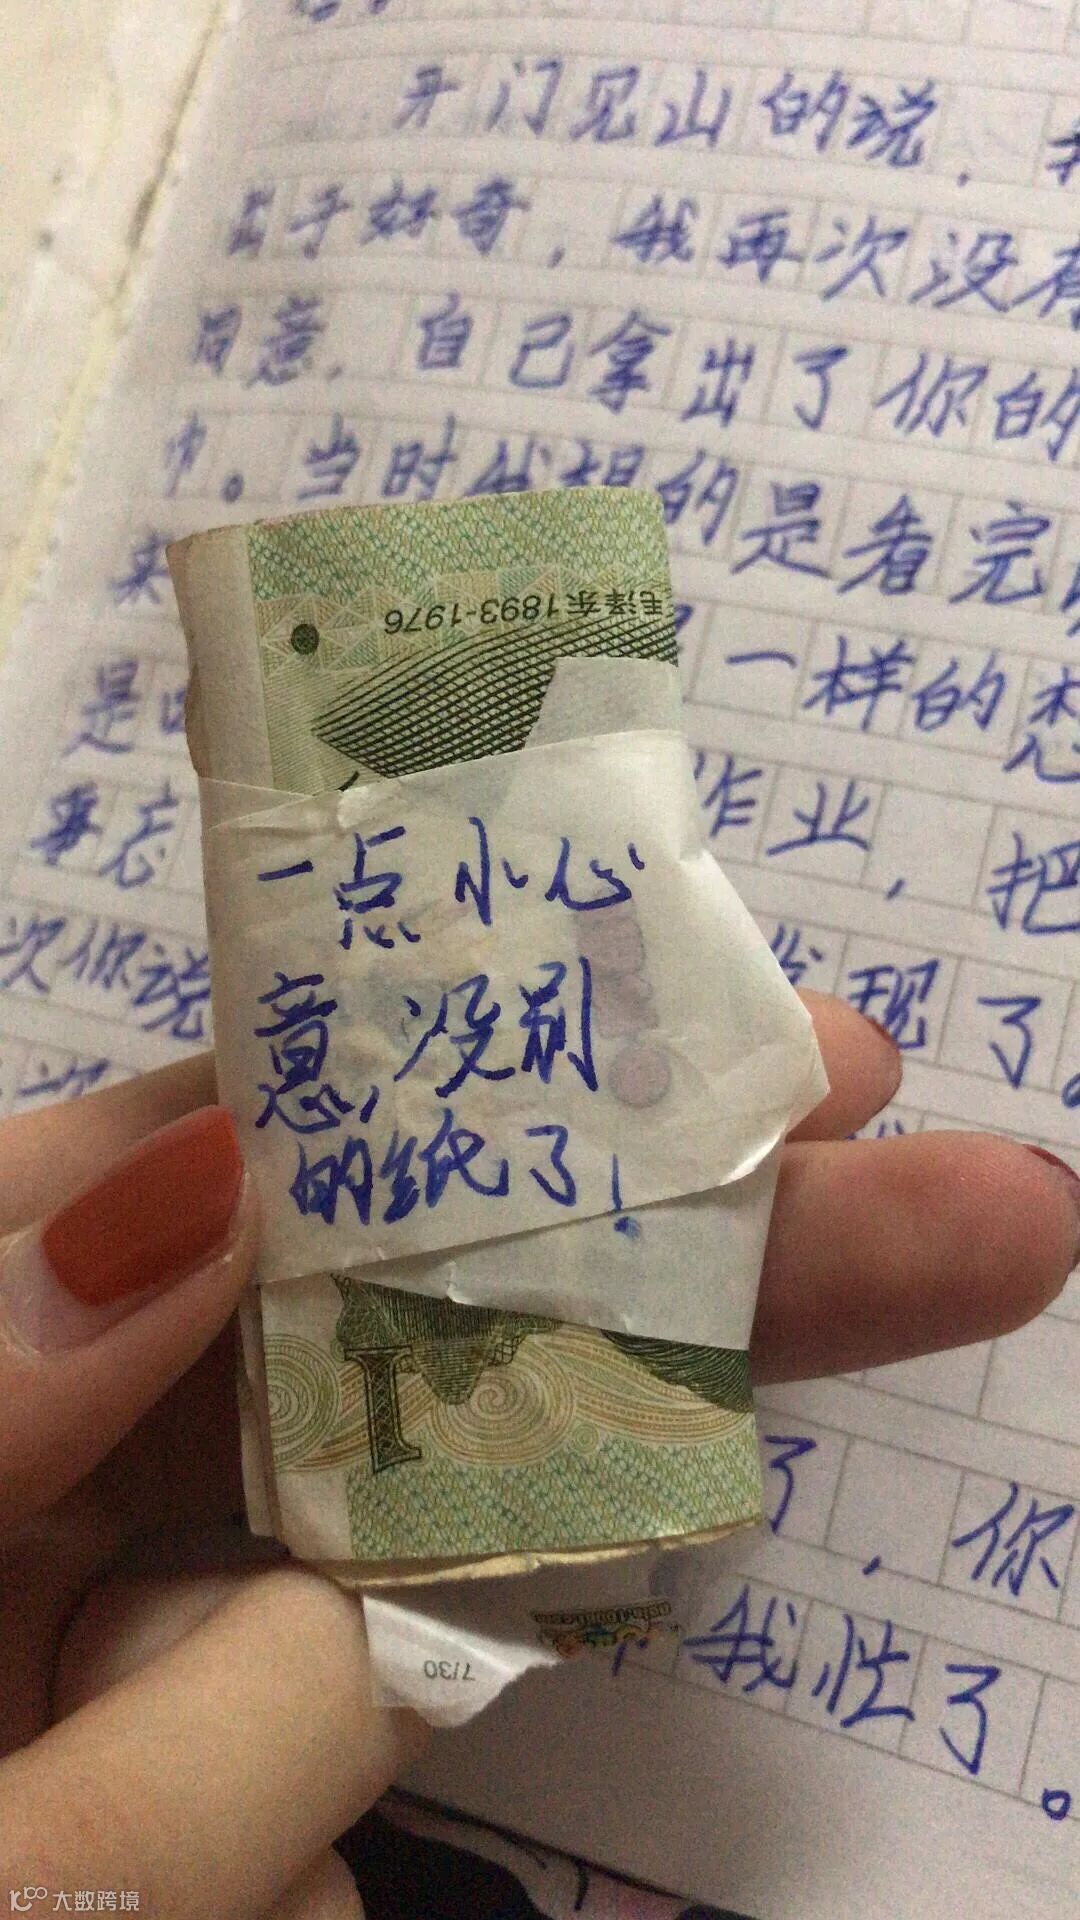 开门见山的说，
出于好奇，我再次没有
同意，自己拿出了你的
当时我想的是看完
毛泽东1893-1976
是
一样的想
忘
作业，把
次你说
发现了。
一点小心
意，没别
的纸了！
1
了，你
7/30
我慌了。
大数跨境